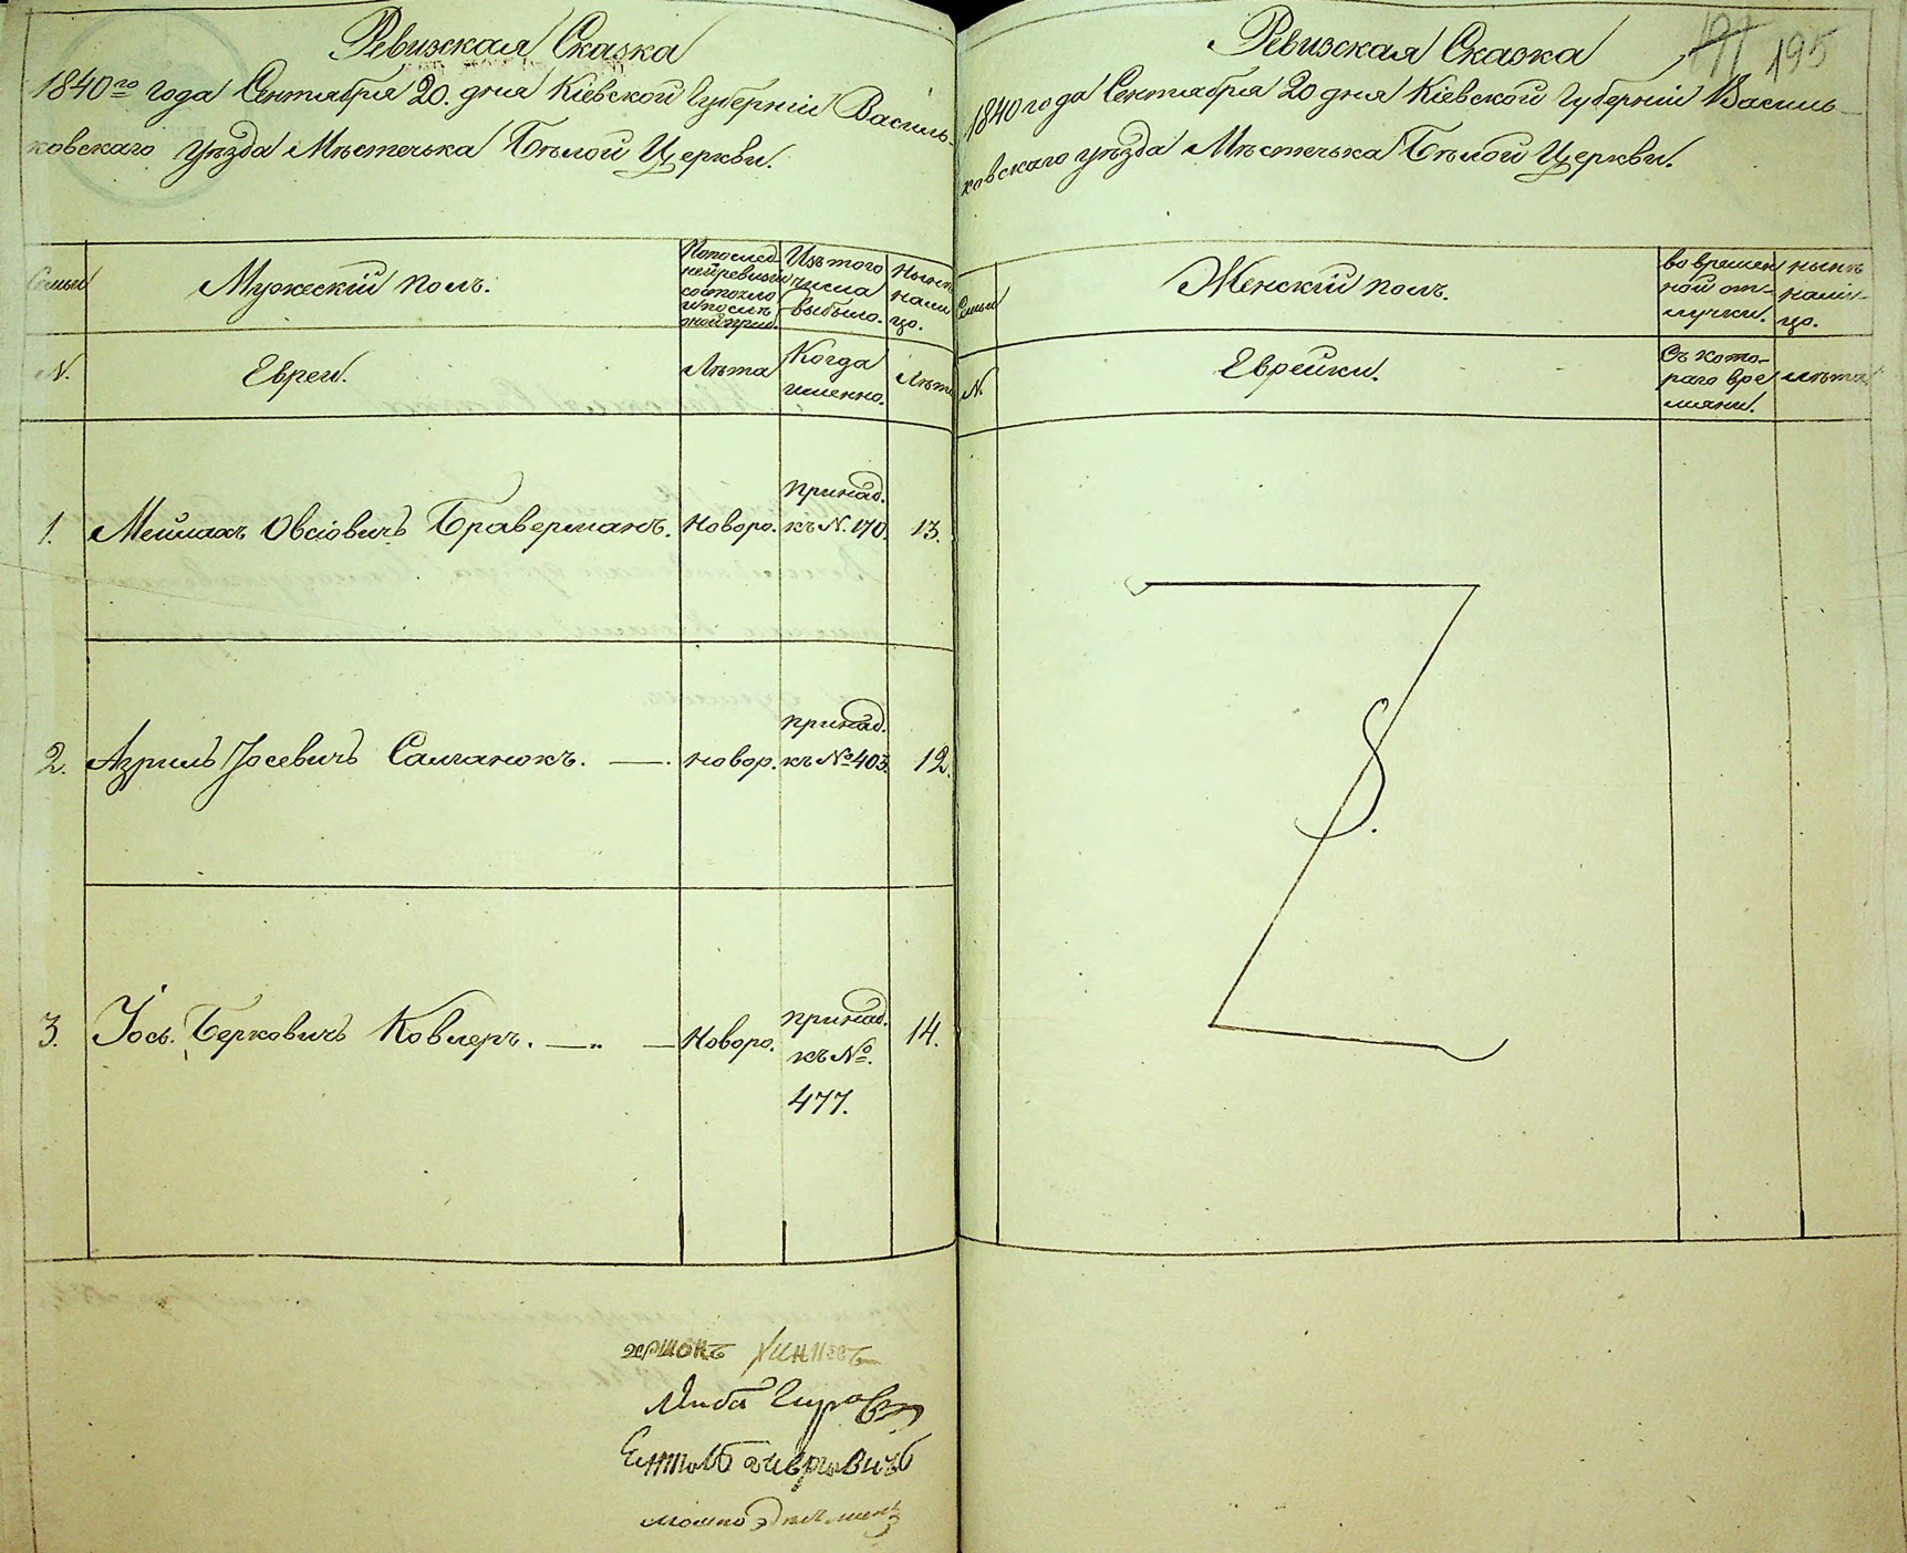 Ревизская Сказка
1840го года Сентября 20. дня Кіевской Губерніи Василь-
ковскаго уѣзда Мѣстечька Бѣлой Церкви.
Семьи
Мужескій полъ.
По послед-
ней ревизіи
состояло
и после
оной приб.
Изъ того
числа
выбыло.
Нынѣ
нали
цо.
N.
Евреи.
Лѣта
Когда
именно.
Лѣта
1.
Меилахъ Овсіовичъ Браверманъ.
Новоро.
принад.
къ N. 170.
13.
2.
Азриль Іосевичъ Салганокъ.
новор.
принад.
къ № 403.
12.
3.
Іось Берковичъ Ковлеръ.
Новоро.
принад.
къ №.
477.
14.
Мошко
197 195
Ревизская Сказка
1840 года Сентября 20 дня Кіевской Губерніи Василь-
ковскаго уѣзда Мѣстечька Бѣлой Церкви.
Семьи
Женскій полъ.
во времен
ной от-
лучки.
нынѣ
нали-
цо.
N.
Еврейки.
Съ кото-
раго вре
мяни.
лѣта